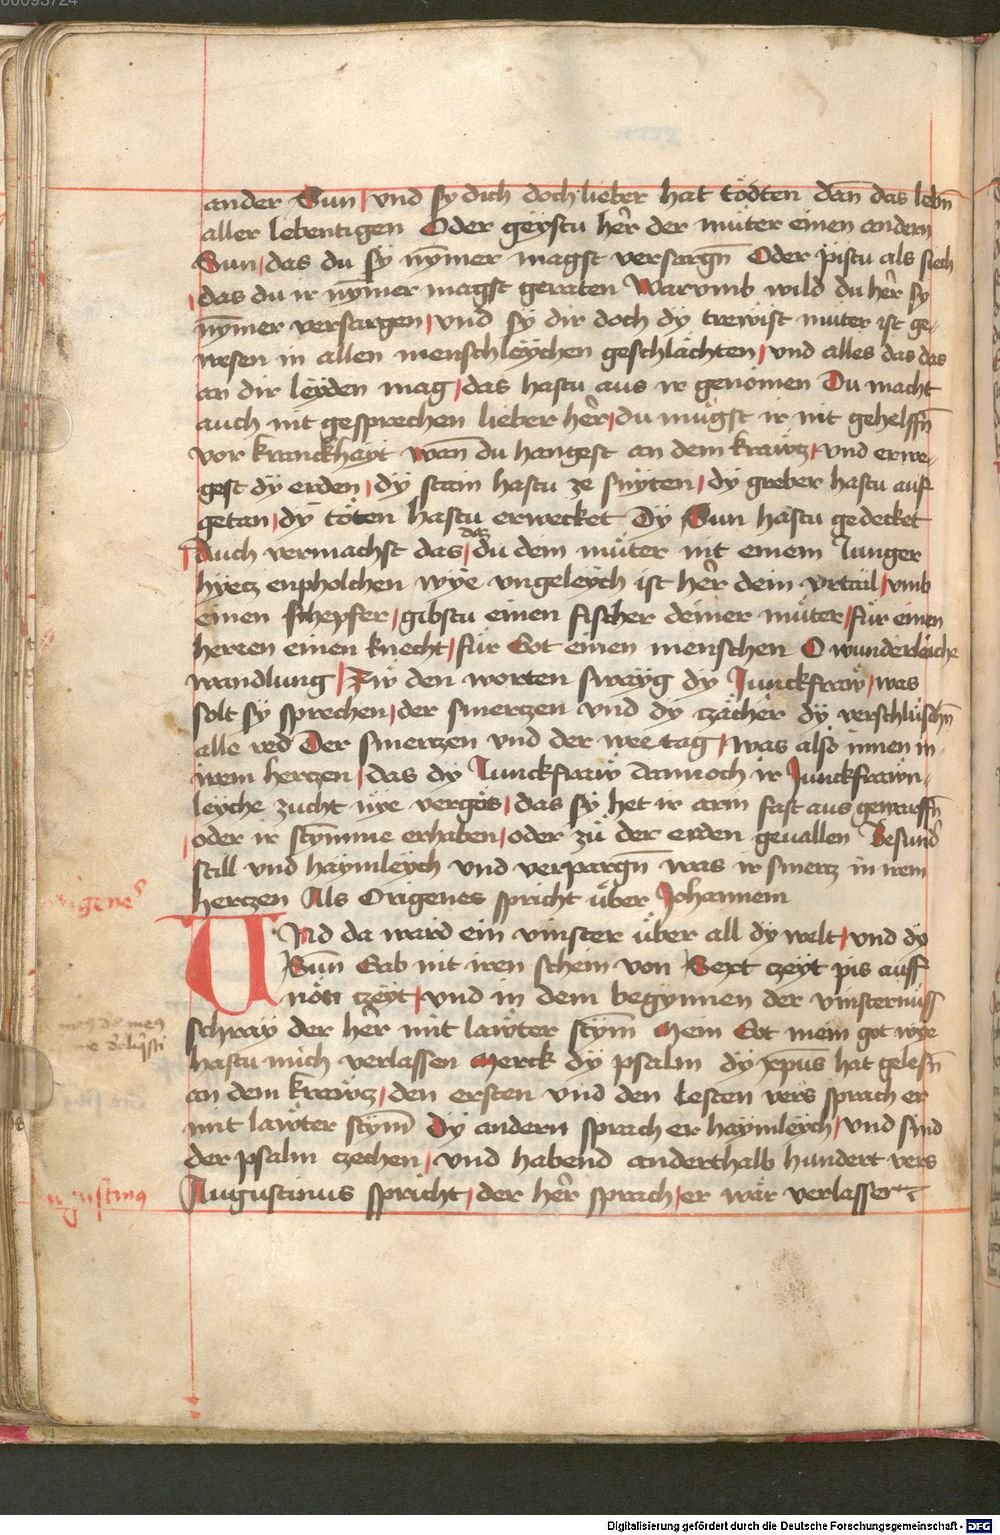 ander Sun / vnd sy dich doch lieber hat tödten dan̄ das lebn̄
aller lebentigen Oder geystu her̄ der müter einen andern
Sun / das du sy nym̄er magst versargn̄ Oder pistu als siech
/ das du ir nym̄er magst gerraten Warvmb wild du her̄ sy
nym̄er versargen / vnd sy dir doch dy trewist müter ist ge-
wesen in allen menschleychen geschlächten / vnd alles das das
an dir leyden mag / das hastu aus ir genomen Du macht
auch nit gesprechen lieber her̄ / du mügst ir nit gehelffn̄
vor kranckhayt wan̄ du hangest an dem krawtz / vnd erwe-
gest dy erden / dy stain hastu ze snyten / dy greber hastu auf
getan / dy töten hastu erwecket Dy Sun hastu gedecket
Auch vermachst das / das du dein müter nit einem Junger
hyetz enpholchen wye vngeleych ist her̄ dein vrtail / vmb
einen schepfer / gibstu einen fischer deiner müter / für einen
herren einen knecht / für Got einen menschen O wunderleiche
wandlung / Zw den worten swayg dy Junckfraw / was
solt sy sprechen / der smertzen vnd dy czächer dy verschlüschn̄
alle red Der smertzen vnd der wee tag / was also innen in
irem hertzen / das dy Junckfraw dannoch ir Junckfrawn-
leyche zucht nye vergös / das sy het ir arm fast aus gewarffn̄
/ oder ir stymme erhaben / oder zü der erden geuallen Besund̄
still vnd haymleych vnd verpargn̄ was ir smertz in irem
hertzen Als Origenes spricht über Johannem
VNd da ward ein vinster über all dy welt / vnd dy
Sun̄ Gab nit iren schein von Sext czeyt pis auff
nön czeyt / vnd in dem begynnen der vinsternüss
schray der her̄ mit lawter stym̄ Mein Got mein got wye
hastu mich verlassen Merck dy psalm dy xpus hat gelesn̄
an dem krawtz / den ersten vnd den lesten vers sprach er
mit lawter stym̄ Dy andern sprach er haymleych / vnd sind
der psalm czechen / vnd habend anderthalb hundert vers
Augustinus spricht / der her̄ sprach / er wär verlassen